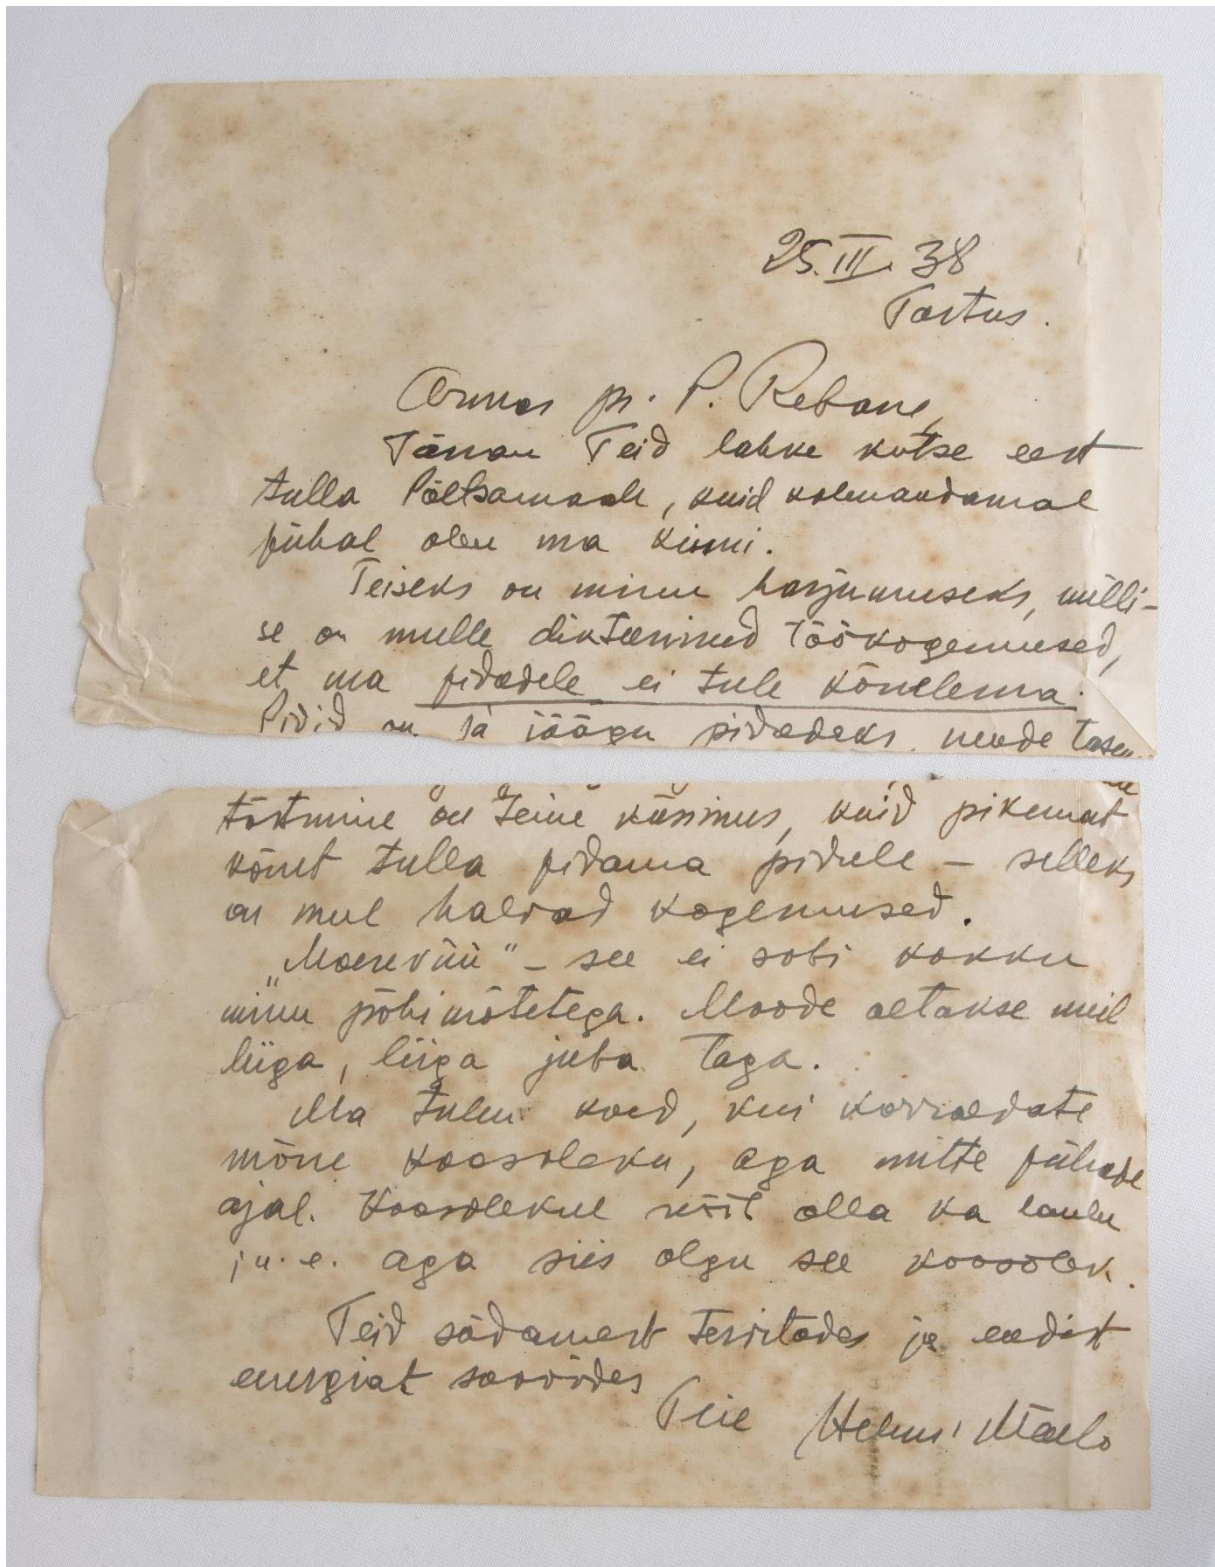 25.III. 38
Tartus.
Armas pr. P. Rebane,
Tänan Teid lahke kutse eest
tulla Põltsamaale, kuid kolmandamal
pühal olen ma kinni.
Teiseks on minu harjumuseks, milli-
se on mulle dikteerinud töökogemused,
et ma pidudele ei tule kõnelema.
Pidid on ja jäägu pidudeks. nende tasem..
tõstmine on teine küsimus, kuid pikemat
kõnet tulla pidama pidule – selleks
on mul halvad kogemused.
„Moerevüü" – see ei sobi kokku
minu põhimõtetega. Moode aetakse meil
liiga, liiga juba taga.
Ma tulen kord, kui korraldate
mõne koosoleku, aga mitte pühade
ajal. Koosolekul võib olla ka laulu
j.n.e. aga siis olgu see koosolek.
Teid südamest tervitades ja endist
energiat soovides
Teie Helmi Mäelo